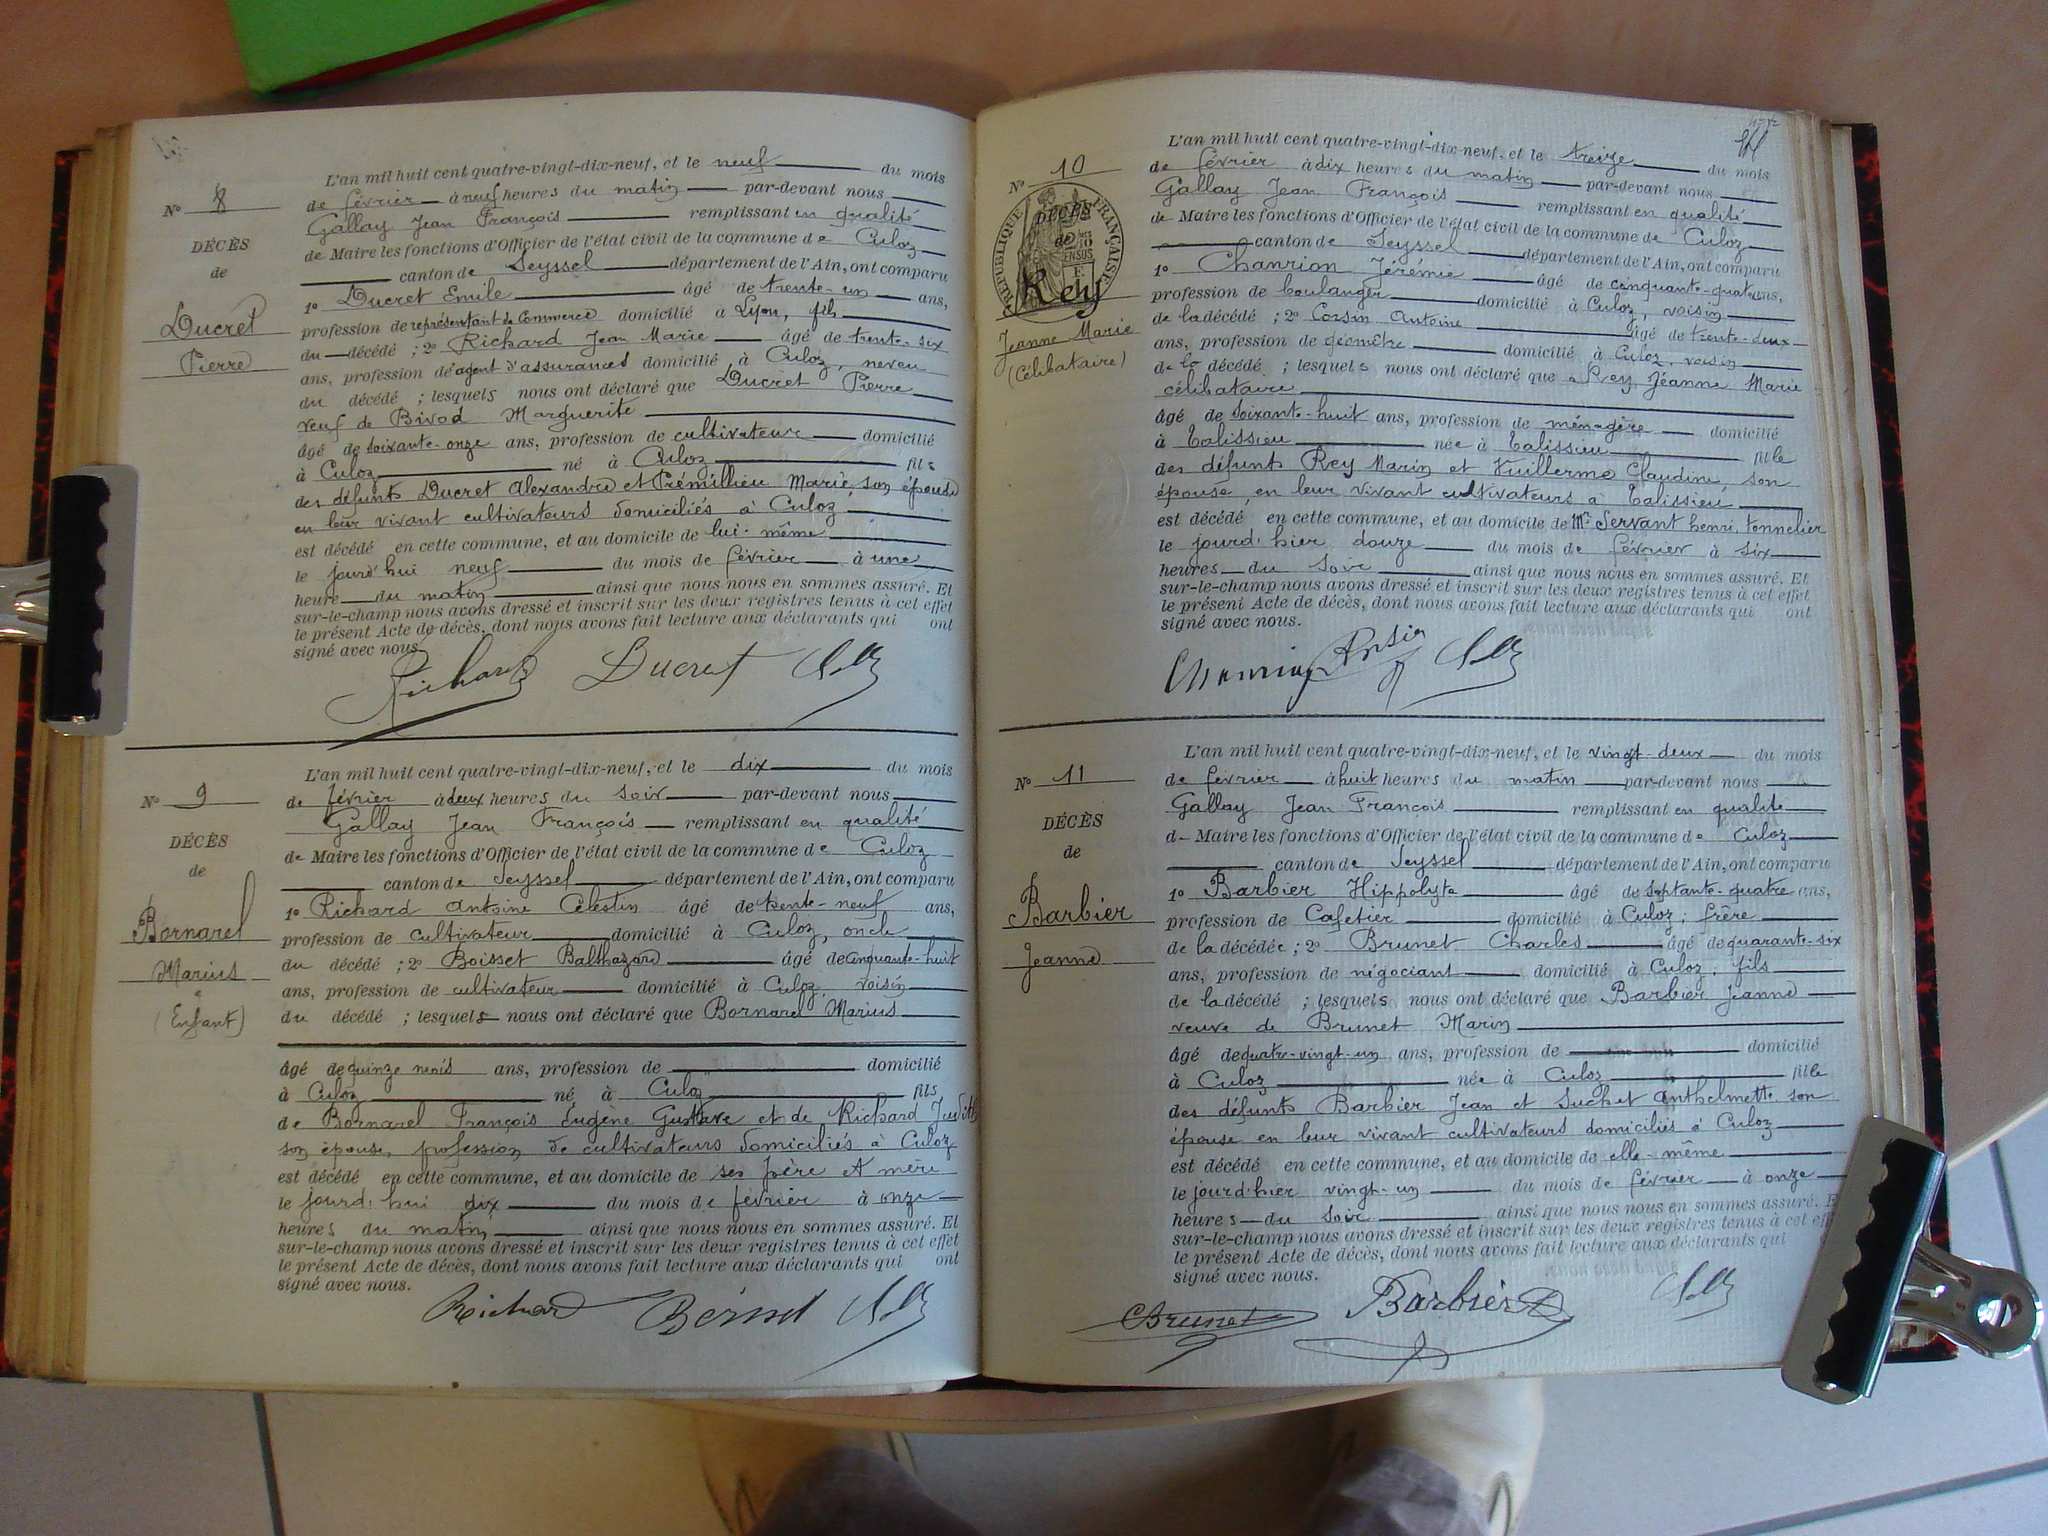 N° 8
DÉCÈS
de
Ducret
Pierre
L'an mil huit cent quatre-vingt-dix-neuf, et le neuf du mois
de février à neuf heures du matin par-devant nous
Gallay Jean François remplissant en qualité
de Maire les fonctions d'Officier de l'état civil de la commune de Culoz
canton de Seyssel département de l'Ain, ont comparu
1° Ducret Emile âgé de trente-un ans,
profession de représentant de Commerce domicilié à Lyon, fils
du décédé ; 2° Richard Jean Marie âgé de trente-six
ans, profession d'agent d'assurances domicilié à Culoz, neveu
du décédé ; lesquels nous ont déclaré que Ducret Pierre
veuf de Bivod Marguerite
âgé de soixante-onze ans, profession de cultivateur domicilié
à Culoz né à Culoz fils
des défunts Ducret Alexandre et Prémillieu Marie, son épouse
en leur vivant cultivateurs domiciliés à Culoz
est décédé en cette commune, et au domicile de lui-même
le jourd'hui neuf du mois de février à une
heure du matin ainsi que nous nous en sommes assuré. Et
sur-le-champ nous avons dressé et inscrit sur les deux registres tenus à cet effet
le présent Acte de décès, dont nous avons fait lecture aux déclarants qui ont
signé avec nous.
Richard Ducret
N° 9
DÉCÈS
de
Bornarel
Marius
(Enfant)
L'an mil huit cent quatre-vingt-dix-neuf, et le dix du mois
de février à deux heures du soir par-devant nous
Gallay Jean François remplissant en qualité
de Maire les fonctions d'Officier de l'état civil de la commune de Culoz
canton de Seyssel département de l'Ain, ont comparu
1° Richard Antoine Célestin âgé de trente-neuf ans,
profession de cultivateur domicilié à Culoz, oncle
du décédé ; 2° Boisset Balthazard âgé de cinquante-huit
ans, profession de cultivateur domicilié à Culoz, voisin
du décédé ; lesquels nous ont déclaré que Bornarel Marius
âgé de quinze mois ans, profession de domicilié
à Culoz né à Culoz fils
de Bornarel François Eugène Gustave et de Richard Judith
son épouse, profession de cultivateurs domiciliés à Culoz
est décédé en cette commune, et au domicile de ses père et mère
le jourd'hui dix du mois de février à onze
heures du matin ainsi que nous nous en sommes assuré. Et
sur-le-champ nous avons dressé et inscrit sur les deux registres tenus à cet effet
le présent Acte de décès, dont nous avons fait lecture aux déclarants qui ont
signé avec nous.
Richard
N° 10
RÉPUBLIQUE FRANÇAISE
DÉCÈS
de
Rey
Jeanne Marie
(Célibataire)
L'an mil huit cent quatre-vingt-dix-neuf, et le treize du mois
de février à dix heures du matin par-devant nous
Gallay Jean François remplissant en qualité
de Maire les fonctions d'Officier de l'état civil de la commune de Culoz
canton de Seyssel département de l'Ain, ont comparu
1° Chanrion Jérémie âgé de cinquante-quatre ans,
profession de boulanger domicilié à Culoz, voisin
de la décédé ; 2° Corsin Antoine âgé de trente-deux
ans, profession de géomètre domicilié à Culoz, voisin
de la décédé ; lesquels nous ont déclaré que Rey Jeanne Marie
célibataire
âgé de soixante-huit ans, profession de ménagère domicilié
à Talissieu née à Talissieu fille
des défunts Rey Marin et Vuillerme Claudine, son
épouse, en leur vivant cultivateurs à Talissieu
est décédé en cette commune, et au domicile de Mr Servant henri, tonnelier
le jourd'hier douze du mois de février à six
heures du soir ainsi que nous nous en sommes assuré. Et
sur-le-champ nous avons dressé et inscrit sur les deux registres tenus à cet effet
le présent Acte de décès, dont nous avons fait lecture aux déclarants qui ont
signé avec nous.
N° 11
DÉCÈS
de
Barbier
Jeanne
L'an mil huit cent quatre-vingt-dix-neuf, et le vingt-deux du mois
de février à huit heures du matin par-devant nous
Gallay Jean François remplissant en qualité
d- Maire les fonctions d'Officier de l'état civil de la commune de Culoz
canton de Seyssel département de l'Ain, ont comparu
1° Barbier Hippolyte âgé de septante-quatre ans,
profession de Cafetier domicilié à Culoz, frère
de la décédée ; 2° Brunet Charles âgé de quarante-six
ans, profession de négociant domicilié à Culoz, fils
de la décédé ; lesquels nous ont déclaré que Barbier Jeanne
veuve de Brunet Marin
âgé de quatre-vingt-un ans, profession de domicilié
à Culoz née à Culoz fille
des défunts Barbier Jean et Suchet Anthelmette son
épouse en leur vivant cultivateurs domiciliés à Culoz
est décédé en cette commune, et au domicile de elle-même
le jourd'hier vingt-un du mois de février à onze
heures du soir ainsi que nous nous en sommes assuré. E
sur-le-champ nous avons dressé et inscrit sur les deux registres tenus à cet eff
le présent Acte de décès, dont nous avons fait lecture aux déclarants qui
signé avec nous.
CBrunet Barbier